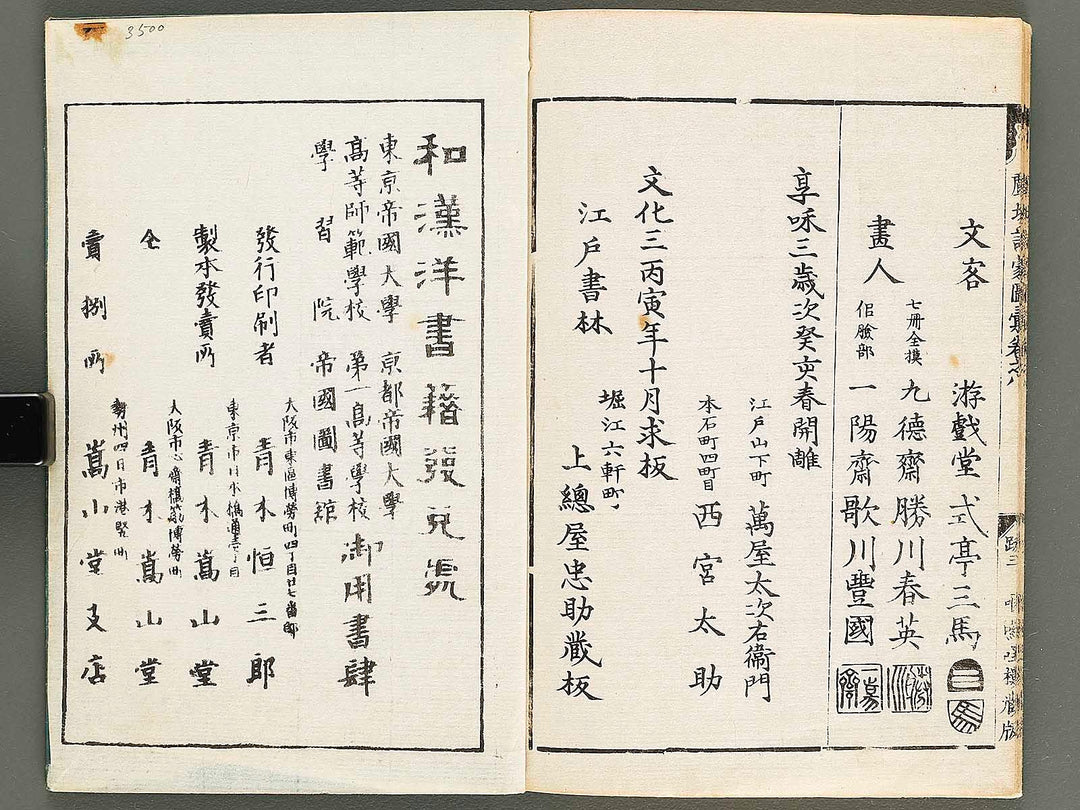 文客 游戯堂 式亭三馬
畫人 七冊全摸 九德齋 勝川春英
佀臉部 一陽齋 歌川豐國
享咊三歳次癸亥春開雕
江戸山下町 萬屋太次右衞門
本石町四町目 西宮太助
文化三丙寅年十月求板
江戸書林 堀江六軒町 上總屋忠助藏板
和漢洋書籍發兌處
東京帝國大學 京都帝國大學
高等師範學校 第一高等學校 御用書肆
學習院 帝國圖書館
大阪市東區博勞町四丁目廿七番邸
發行印刷者 青木恒三郎
東京市
製本發賣所 青木嵩山堂
大阪市心齋橋筋博勞町
仝 青木嵩山堂
勢州四日市港竪町
賣捌所 嵩山堂支店
3500